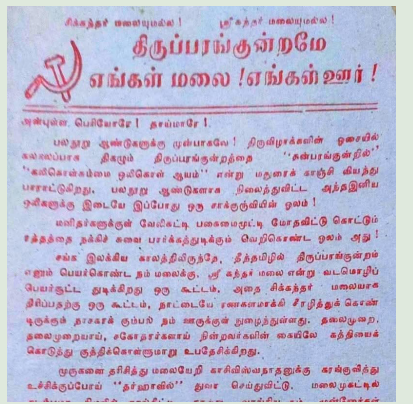 சிக்கந்தர் மலையுமல்ல! ஸ்ரீகந்தர் மலையுமல்ல!
திருப்பரங்குன்றமே
எங்கள் மலை! எங்கள் ஊர்!
அன்புள்ள பெரியோரே! தாய்மாரே!
பலநூறு ஆண்டுகளுக்கு முன்பாகவே! திருவிழாக்களின் ஓசையில்
கலகலப்பாக திகழும் திருப்பரங்குன்றத்தை "தன்பரங்குன்றில்"
"கலிகொள்சும்மை ஒலிகொள் ஆயம்" என்று மதுரைக் காஞ்சி வியந்து
பாராட்டுகிறது. பலநூறு ஆண்டுகளாக நிலைத்துவிட்ட அந்தஇனிய
ஒலிகளுக்கு இடையே இப்போது ஒரு சாக்குருவியின் ஓலம்!
மனிதர்களுக்குள் வேலிகட்டி பகைமைமூட்டி மோதவிட்டு கொட்டும்
சத்தத்தை நக்கிச் சுவை பார்க்கத்துடிக்கும் வெறிகொண்ட ஓலம் அது!
சங்க இலக்கிய காலத்திலிருந்தே, தீந்தமிழில் திருப்பரங்குன்றம்
எனும் பெயர்கொண்ட நம் மலைக்கு, ஸ்ரீ கந்தர் மலை என்று வடமொழிப்
பெயர்சூட்ட துடிக்கிறது ஒரு கூட்டம், அதை சிக்கந்தர் மலையாக
திரிப்பதற்கு ஒரு கூட்டம், நாட்டையே ரணகளமாக்கி சீரழித்துக் கொண்
டிருக்கும் நாசகாரக் கும்பல் நம் ஊருக்குள் நுழைந்துள்ளது. தலைமுறை,
தலைமுறையாய், சகோதரர்களாய் நின்றவர்களின் கையிலே கத்தியைக்
கொடுத்து குத்திக்கொள்ளுமாறு உபதேசிக்கிறது.
முருகனை தரிசித்து மலையேறி காசிவிஸ்வநாதனுக்கு கரங்குவித்து
உச்சிக்குப்போய் "தர்ஹாவில்" துவா செய்துவிட்டு. மலைமுகட்டில்